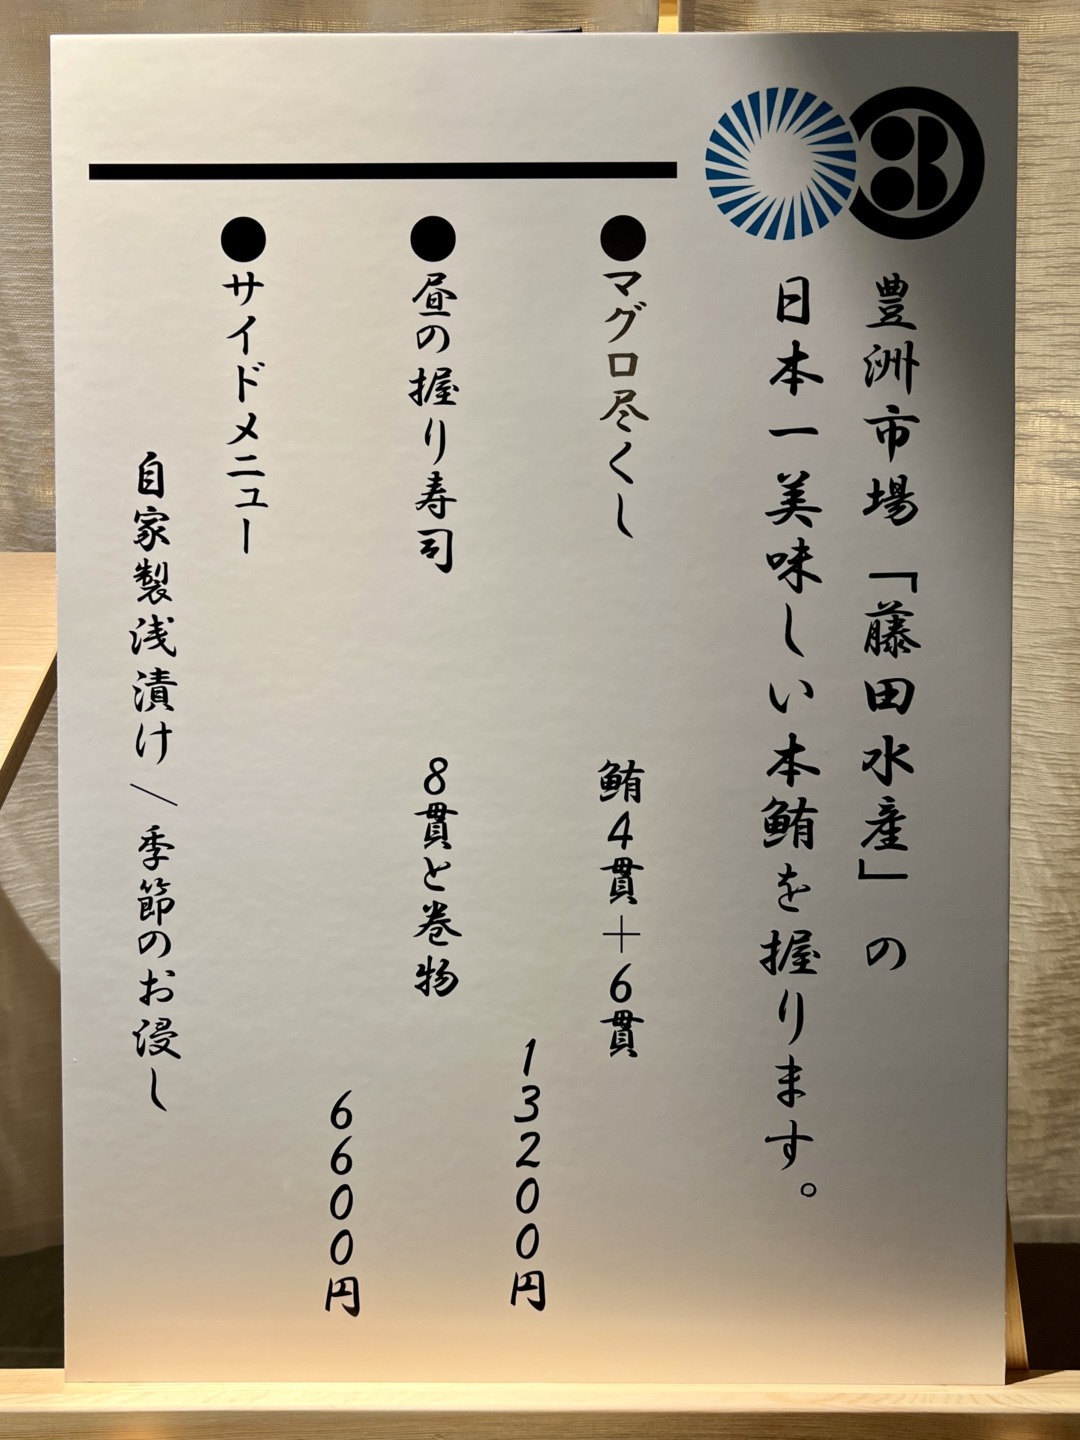 豊洲市場「藤田水産」の
日本一美味しい本鮪を握ります。
●マグロ尽くし
鮪4貫＋6貫
13200円
●昼の握り寿司
8貫と巻物
6600円
●サイドメニュー
自家製浅漬け／季節のお浸し